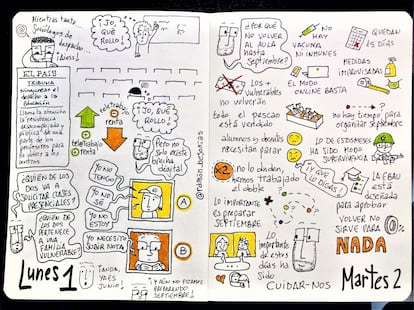 Mientras tanto
Sucedáneos de
despacho...
¡Adiós!
¡JO,
QUÉ
ROLLO!
EL PAÍS
TRIBUNA
Ningunean el
derecho a la
Educación
Llama la atención
la resistencia
desacomplejada
y pública de una
parte de los
profesores para
no volver a los
centros
teletrabajo
renta
teletrabajo
renta
¡JO, QUÉ
ROLLO!
Pero no
solo existe
brecha
digital
@ramon_besonias
¿QUIÉN DE
LOS DOS
VA A
SOLICITAR CLASES
PRESENCIALES?
¿QUIÉN DE
LOS DOS
PERTENECE
A UNA
FAMILIA
VULNERABLE?
YO NO
TENGO
YO NO
SÉ
YO NO
ESTOY
A
YO NECESITO
SUBIR NOTA
B
Lunes 1
TANDA,
YA ES
JUNIO!
¡Y AÚN NO ESTAMOS
PREPARANDO
SEPTIEMBRE!
¿POR QUÉ
NO VOLVER
AL AULA
HASTA
SEPTIEMBRE?
NO HAY
VACUNA
NI INMUNES
QUEDAN
15 DÍAS
LOS +
vulnerables
no volverán
EL MODO
ONLINE BASTA
MEDIDAS
IMPROVISADAS
todo el pescado
está vendido
no hay tiempo para
organizar septiembre
alumnos y docentes
necesitan parar
LO DE ESTOS MESES
HA SIDO
SUPERVIVENCIA
x2
no lo olviden,
hemos trabajado
el doble
¡Y QUE
LO DIGAS!
LA EBAU
está
diseñada
para aprobar
LO IMPORTANTE
es preparar
SEPTIEMBRE
VOLVER NO
SIRVE PARA
NADA
Lo
importante
de estos
días ha
sido
CUIDAR-NOS
Martes 2